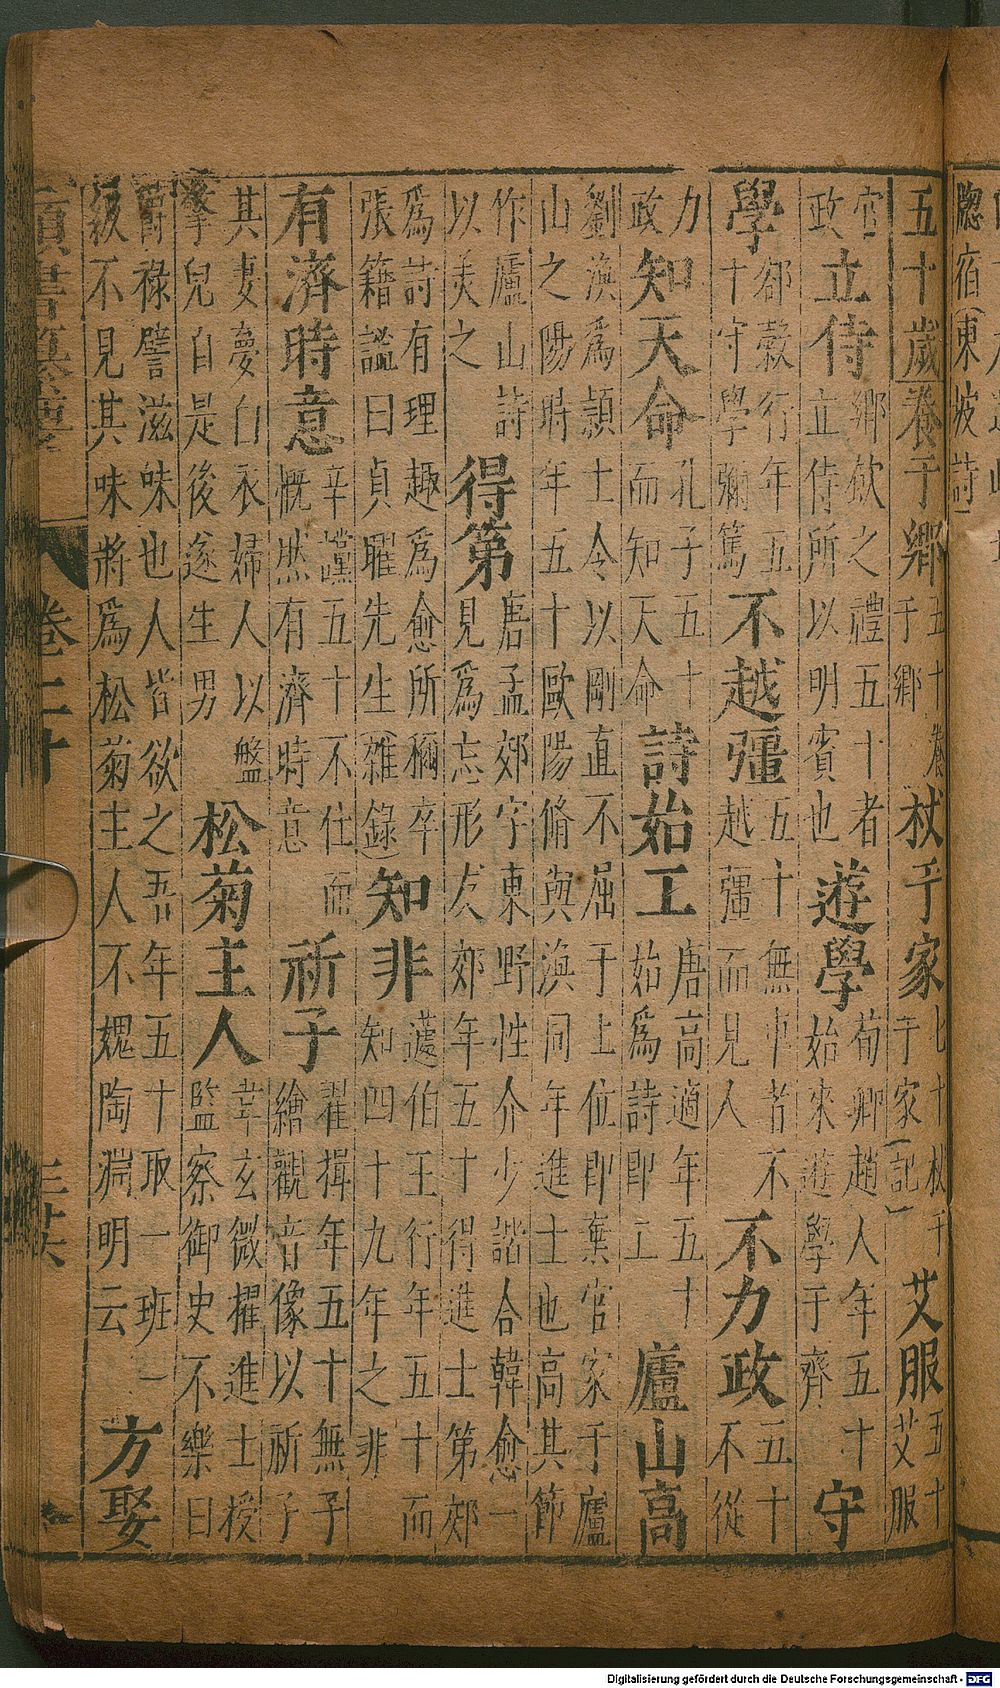 宿(東坡詩
五十歲養于鄉五十養于鄉杖于家七十杖于家(記)艾服五十艾服
官政立侍鄉飲之禮五十者立侍所以明賓也遊學荀卿趙人年五十始來遊學于齊守
學郄縠行年五十守學彌篤不越彊五十無車者不越彊而見人不力政五十不從
力政知天命孔子五十而知天命詩始工唐高適年五十始爲詩即工廬山高
劉渙爲潁上令以剛直不屈于上位即棄官家于廬山之陽時年五十歐陽脩與渙同年進士也高其節
作廬山詩以美之得第唐孟郊字東野性介少諧合韓愈一見爲忘形友郊年五十得進士第郊
爲詩有理趣爲愈所稱卒張籍謚曰貞曜先生(雜錄)知非蘧伯玉行年五十而知四十九年之非
有濟時意辛讜五十不仕而慨然有濟時意祈子翟揖年五十無子繪觀音像以祈子
其妻夢白衣婦人以盤擎兒自是後遂生男松菊主人韋玄微擢進士授監察御史不樂曰
爵祿譬滋味也人皆欲之吾年五十取一班一級不見其味將爲松菊主人不媿陶淵明云方娶
類書纂要 卷二十
Digitalisierung gefördert durch die Deutsche Forschungsgemeinschaft - DFG